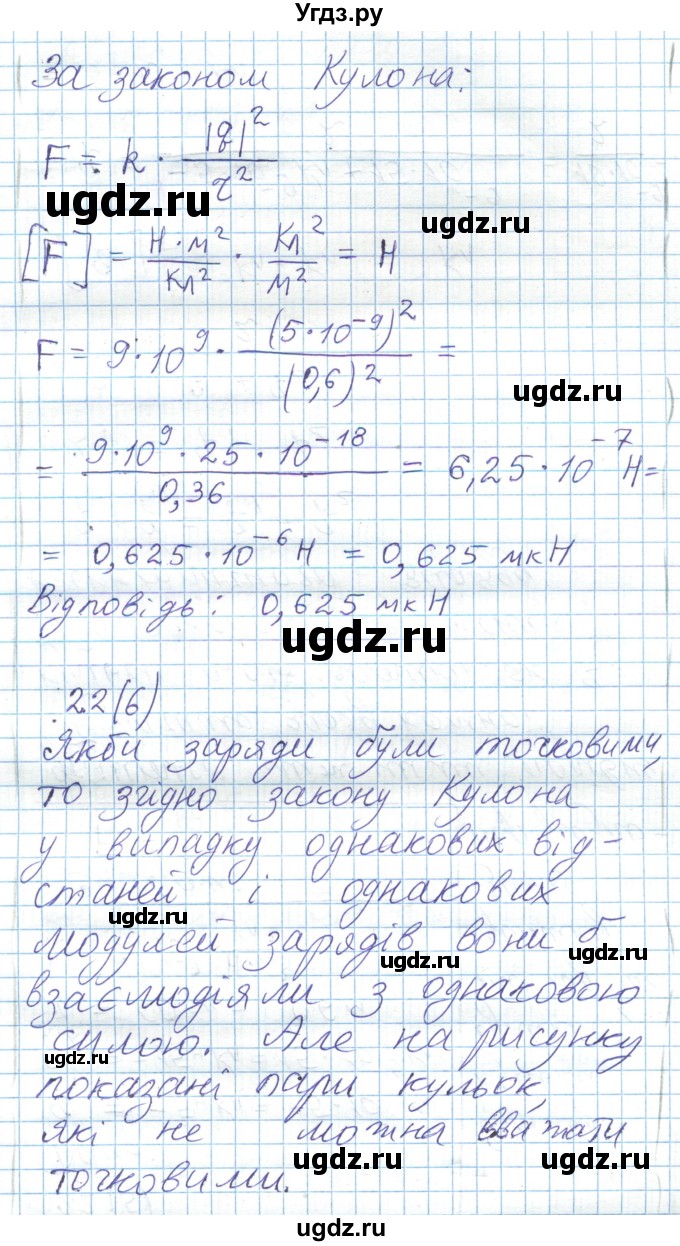 Угдз.ру
За законом Кулона:
F = k · |q|² / r²
ugdz.ru
ugdz.ru
[F] = Н·м² / Кл² · Кл² / м² = Н
F = 9·10⁹ · (5·10⁻⁹)² / (0,6)² =
ugdz.ru
= 9·10⁹ · 25 · 10⁻¹⁸ / 0,36 = 6,25·10⁻⁷ Н =
= 0,625·10⁻⁶ Н = 0,625 мкН
Відповідь: 0,625 мкН
ugdz.ru
2.2(6)
Якби заряди були точковими,
то згідно закону Кулона
у випадку однакових від-
станей і однакових
ugdz.ru
модулей зарядів вони б
ugdz.ru
взаємодіяли з однаковою
силою. Але на рисунку
ugdz.ru
показані пари кульок,
які не можна вважати
ugdz.ru
точковими.
ugdz.ru